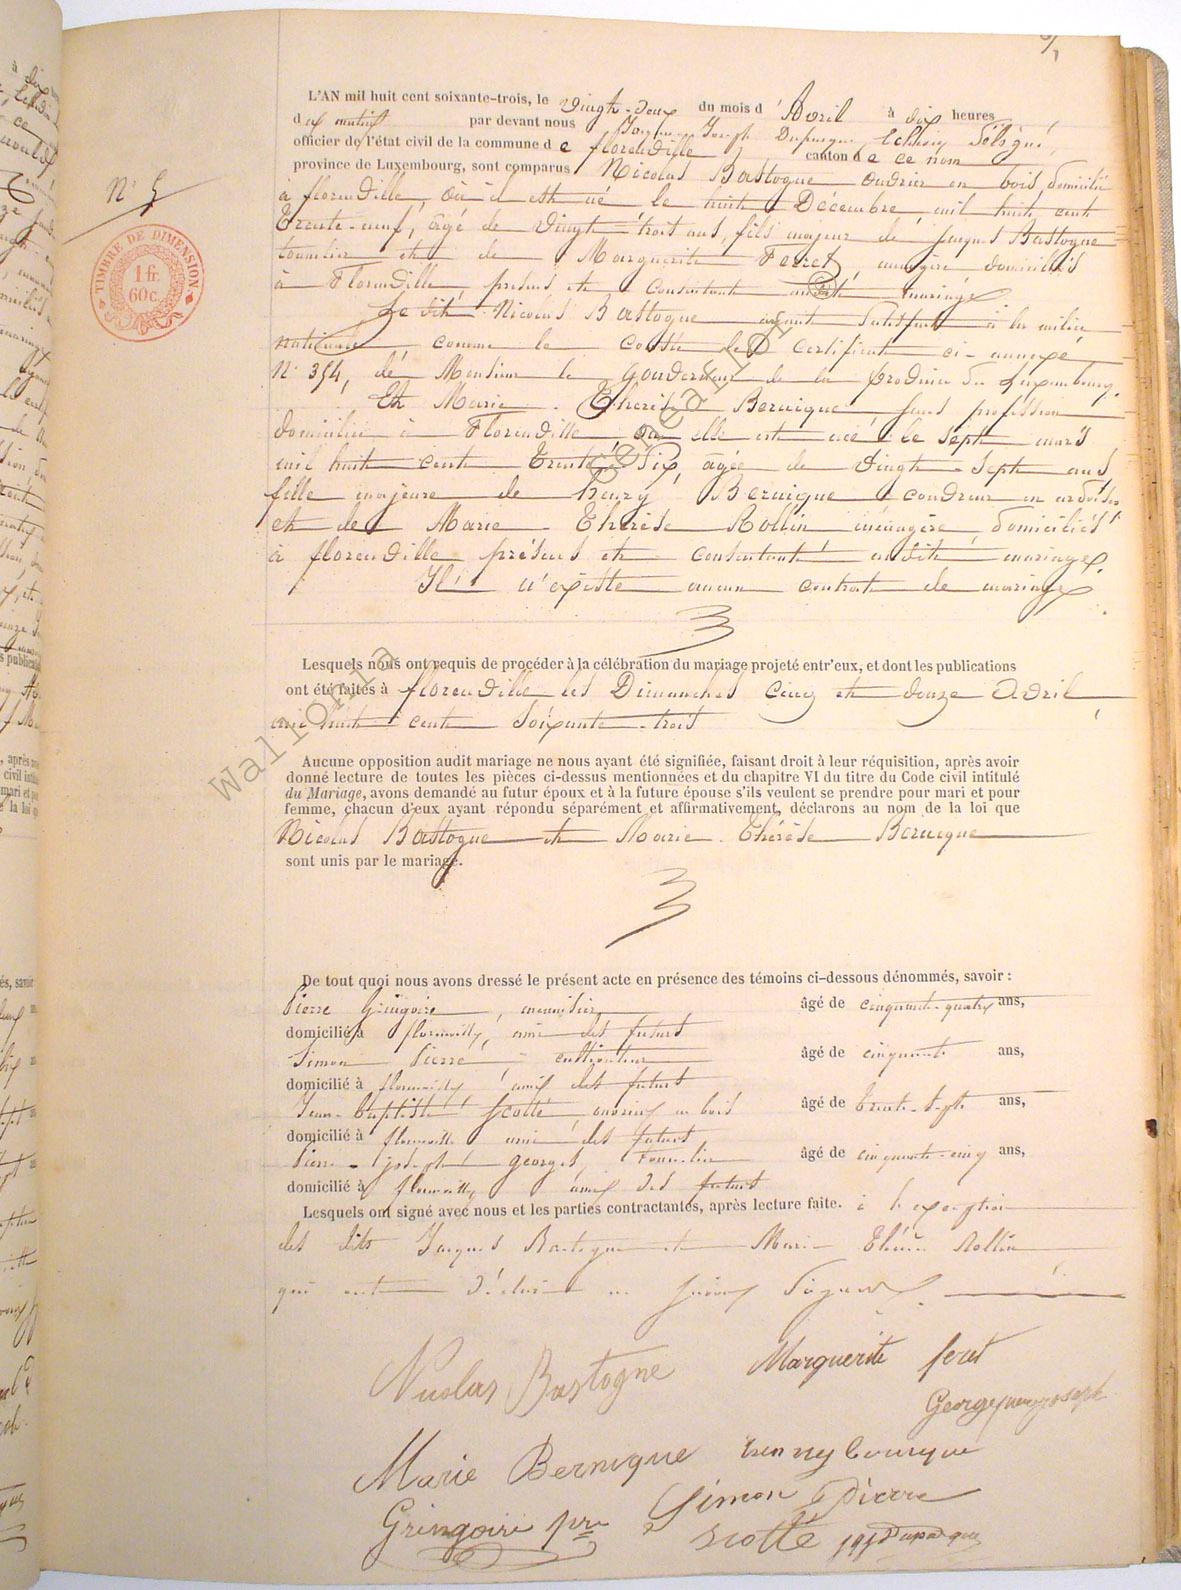 L'AN mil huit cent soixante-trois, le vingt-deux du mois d'Avril à dix heures
du matin par devant nous Joseph Echevin Délégué,
officier de l'état civil de la commune de florenville canton de ce nom
province de Luxembourg, sont comparus Nicolas Bastogne ouvrier en bois, domicilié
à florenville, où il est né le huit Décembre mil huit cent
Trente-neuf, âgé de vingt-trois ans, fils majeur de Jacques Bastogne
et de Marguerite Ferret, ménagère domiciliés
à Florenville, présens et consentant audit mariage
Le dit Nicolas Bastogne ayant satisfait à la milice
nationale comme le constate le certificat ci-annexé
N° 354, de Monsieur le Gouverneur de la province du Luxembourg.
Et Marie-Thérèse Bernique, sans profession
domiciliée à Florenville, où elle est née le sept mars
mil huit cent Trente-Six, âgée de vingt-sept ans,
fille majeure de henry Bernique couvreur en ardoises
et de Marie-Thérèse Rollin ménagère, domiciliés
à florenville présens et consentant audit mariage.
Il n'existe aucun contrat de mariage
Lesquels nous ont requis de procéder à la célébration du mariage projeté entr'eux, et dont les publications
ont été faites à florenville les Dimanches cinq et douze Avril
mil huit cent soixante-trois
Aucune opposition audit mariage ne nous ayant été signifiée, faisant droit à leur réquisition, après avoir
donné lecture de toutes les pièces ci-dessus mentionnées et du chapitre VI du titre du Code civil intitulé
du Mariage, avons demandé au futur époux et à la future épouse s'ils veulent se prendre pour mari et pour
femme, chacun d'eux ayant répondu séparément et affirmativement, déclarons au nom de la loi que
Nicolas Bastogne et Marie-Thérèse Bernique
sont unis par le mariage.
De tout quoi nous avons dressé le présent acte en présence des témoins ci-dessous dénommés, savoir :
Pierre Gringoire, menuisier, âgé de cinquante-quatre ans,
domicilié à florenville, ami des futurs
Simon Pierre, cultivateur âgé de cinquante ans,
domicilié à florenville, ami des futurs
Jean-Baptiste Scotté, ouvrier en bois âgé de trente-sept ans,
domicilié à florenville ami des futurs
Pierre-Joseph georges, âgé de cinquante-cinq ans,
domicilié à florenville ami des futurs
Lesquels ont signé avec nous et les parties contractantes, après lecture faite. à l'exception
des dits Jacques Bastogne et Marie Thérèse Rollin
qui ont déclaré ne savoir signer.
Nicolas Bastogne Marguerite feret
George joseph
Marie Bernique henry bernique
Gringoire pre Simon Pierre
Scotté
N° 5
TIMBRE DE DIMENSION
1 fr.
60 c.
Wallonia Genealogy